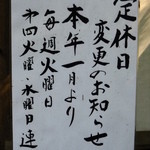 定休日
変更のお知らせ
本年一月より
毎週火曜日
第四火曜・水曜日連